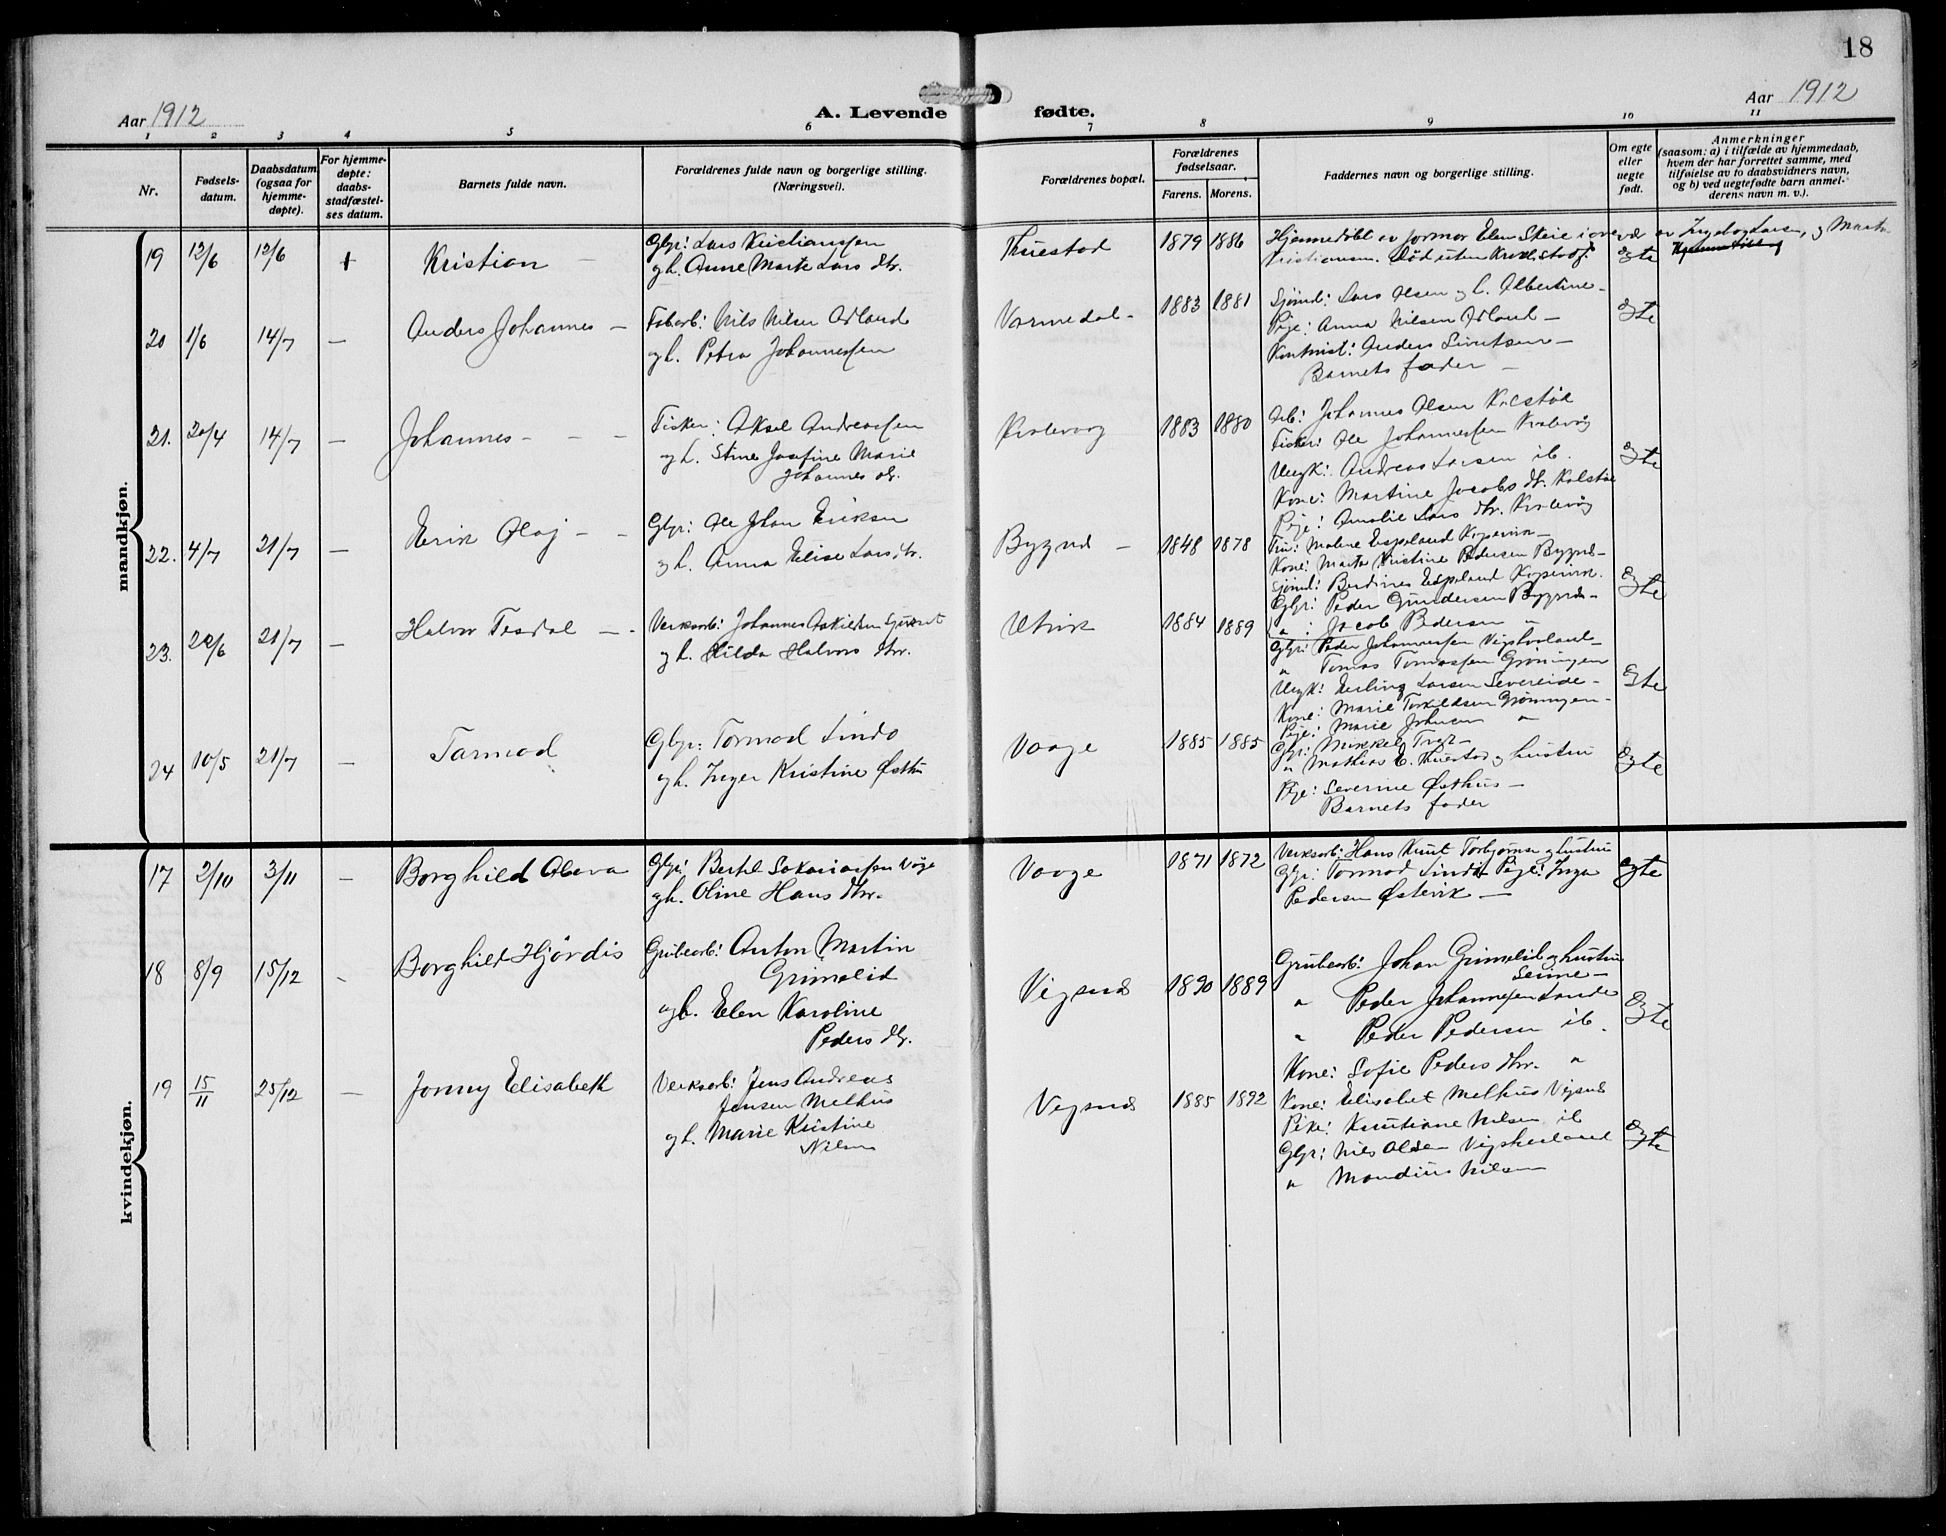 18
Aar 1912
A. Levende fødte.
Aar 1912
1 2 3 4 5 6 7 8 9 10 11
Nr.
Fødsels-
datum.
Daabsdatum
(ogsaa for
hjemme-
døpte).
For hjemme-
døpte:
daabs-
stadfæstel-
ses datum.
Barnets fulde navn.
Forældrenes fulde navn og borgerlige stilling.
(Næringsvei).
Forældrenes bopæl.
Forældrenes
fødselsaar.
Farens. Morens.
Faddernes navn og borgerlige stilling.
Om egte
eller
uegte
født.
Anmerkninger
(saasom: a) i tilfælde av hjemmedaab,
hvem der har forrettet samme, med
tilføielse av to daabsvidners navn,
og b) ved uegtefødte barn anmel-
derens navn m. v.).
mandkjøn.
19 12/6 12/6 + Kristian —
Gbr: Lars Kristianssen
og h. Anne Marte Lars dtr.
Thuestad 1879 1886
Hjemmedøbt av formor Elen Skeie i overvær av Ingeborg Larsen, og Marta
Kristiansen. Død uten
egte
20 1/6 14/7 — Anders Johannes —
Fabarb: Nils Nilsen Adland
og h. Petra Johannessen
Vormedal - 1883 1881
Sjømd: Lars Olsen og h. Albertine -
Pige: Anna Nilsen Adland —
Kontorist: Anders Sivertsen —
Barnets fader —
egte
21. 20/4 14/7 — Johannes - - -
Fisker: Aksel Andreassen
og h. Stine Josefine Marie
Johannes dr.
Kvalevaag 1883 1880
Arb: Johannes Olsen Kolstø
Fisker: Ole Johannessen Kvalevåg
Ungk: Andreas Larsen ib.
Kone: Martine Jacobs dtr. Kolstø
Pige: Amalie Lars dtr. Kvalevåg
egte
22. 4/7 21/7 — Erik Olaj - -
Gbr: Ole Johan Eriksen
og h. Anna Elise Lars dtr.
Bygnes — 1848 1878
Fru: Malene Espeland Kopervik —
Kone: Marta Kristine Pedersen Bygnes -
Sjømd: Berdines Espeland Kopervik.
Gbr: Peder Gundersen Bygnes -
" : Jacob Pedersen "
egte
23. 22/6 21/7 — Halvor Tesdal - -
Verksarb: Johannes Askildsen
og h. Hilda Halvors dtr.
Utvik 1884 1889
Gbr: Peder Johannessen Vigshovland -
" Tomas Tomassen Grøningen
Ungk: Erling Larsen Severeide -
Kone: Marie Torkildsen Grøningen -
Pige: Marie Johnsen "
egte
24 10/5 21/7 — Tarmod
Gbr: Tormod Lindø
og h. Inger Kristine Østhus
Vaage 1885 1885
Gbr: Mikkel —
" Mathias E. Thuestad og hustru
Pige: Severine Østhus —
Barnets fader
egte
kvindekjøn.
17 2/10 3/11 — Borghild Olava
Gbr: Bertel Sakariassen Våge
og h. Oline Hans dtr.
Vaage 1871 1872
Verksarb: Hans Knut Torbjørnsen og hustru
Gbr: Tormod Lindø Pige: Inga
Pedersen Østevik —
egte
18 8/9 15/12 - Borghild Hjørdis
Grubearb: Anton Martin
Grimelid
og h. Elen Karoline
Peders dtr.
Vigsnes 1890 1889
Grubearb: Johan Grimelid og hustru
Seine —
" Peder Johannessen Sande
" Peder Pedersen ib.
Kone: Sofie Peders dtr. "
egte
19 15/11 25/12 — Jonny Elisabeth
Verksarb: Jens Andreas
Jensen Melhus
og h. Marie Kristine
Nilsen
Vigsnes 1885 1892
Kone: Elisabet Melhus Vigsnes
Pike: Kristiane Nilsen ib
Gbr: Nils Olsen Vigshovland
" Mandius Nilsen
egte